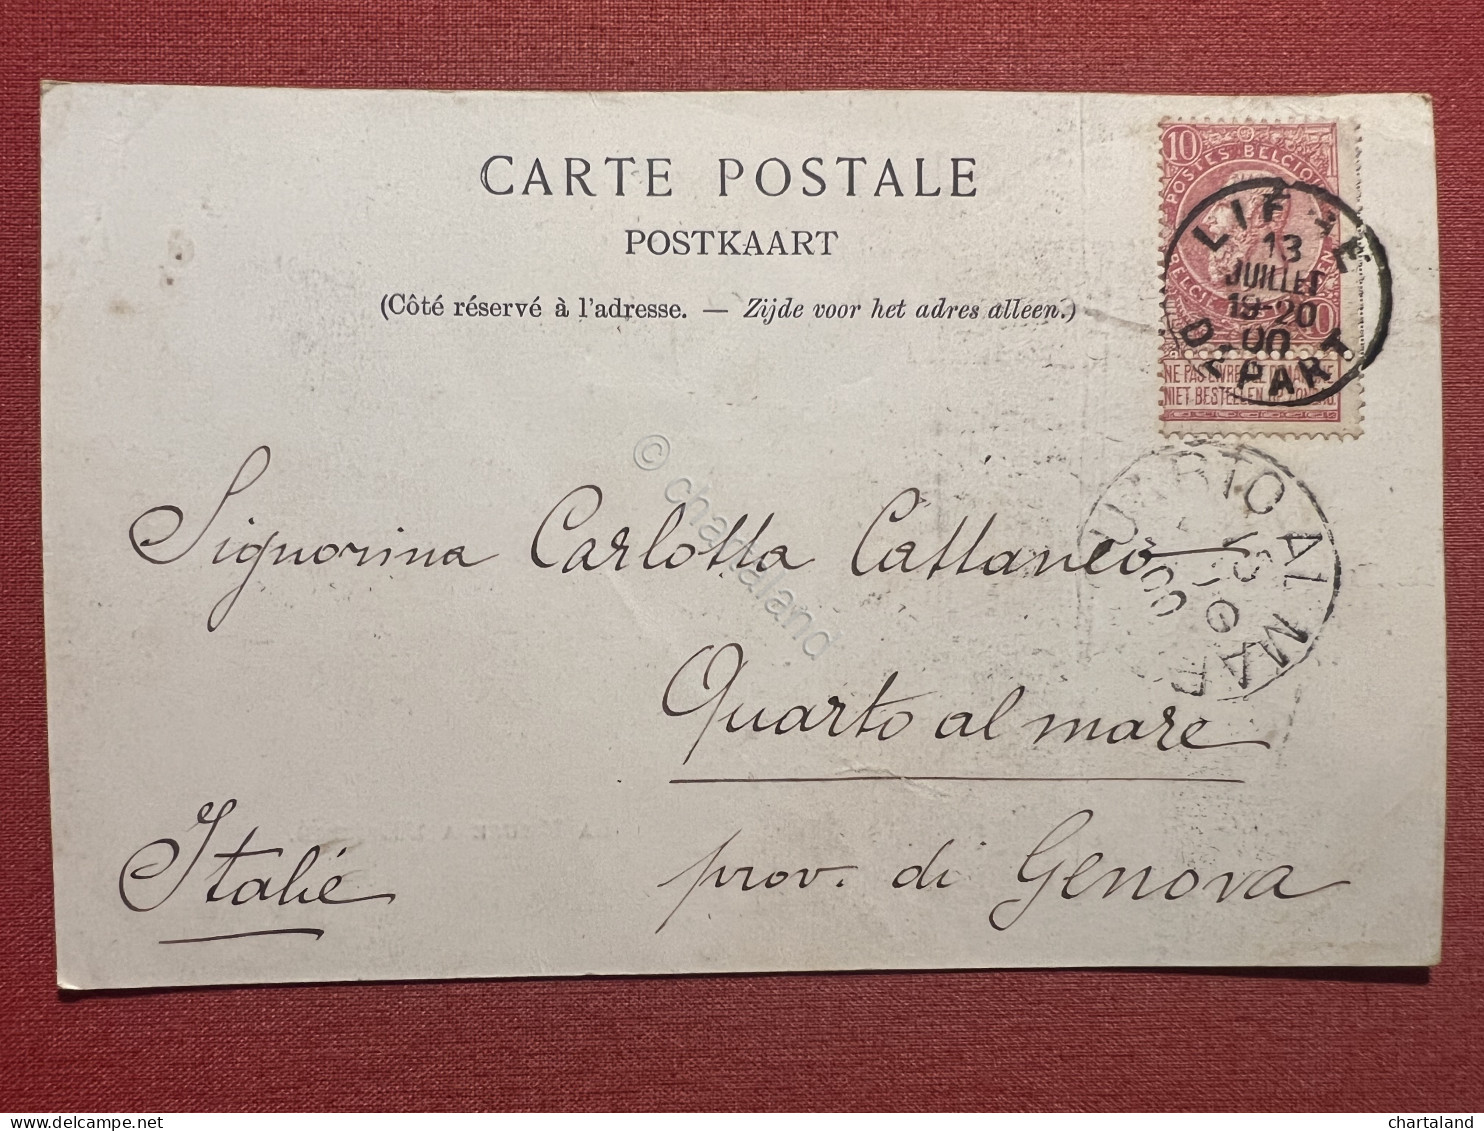 CARTE POSTALE
POSTKAART
(Côté réservé à l'adresse. — Zijde voor het adres alleen.)
10
POSTES BELGIQUE
10
NIET BESTELLEN OP ZONDAG.
LIEGE
13
JUILLET
19-20
00
DEPART
QUARTO AL MARE
15
00
© chartaland
Signorina Carlotta Cattaneo
Quarto al mare
prov. di Genova
Italie
chartaland